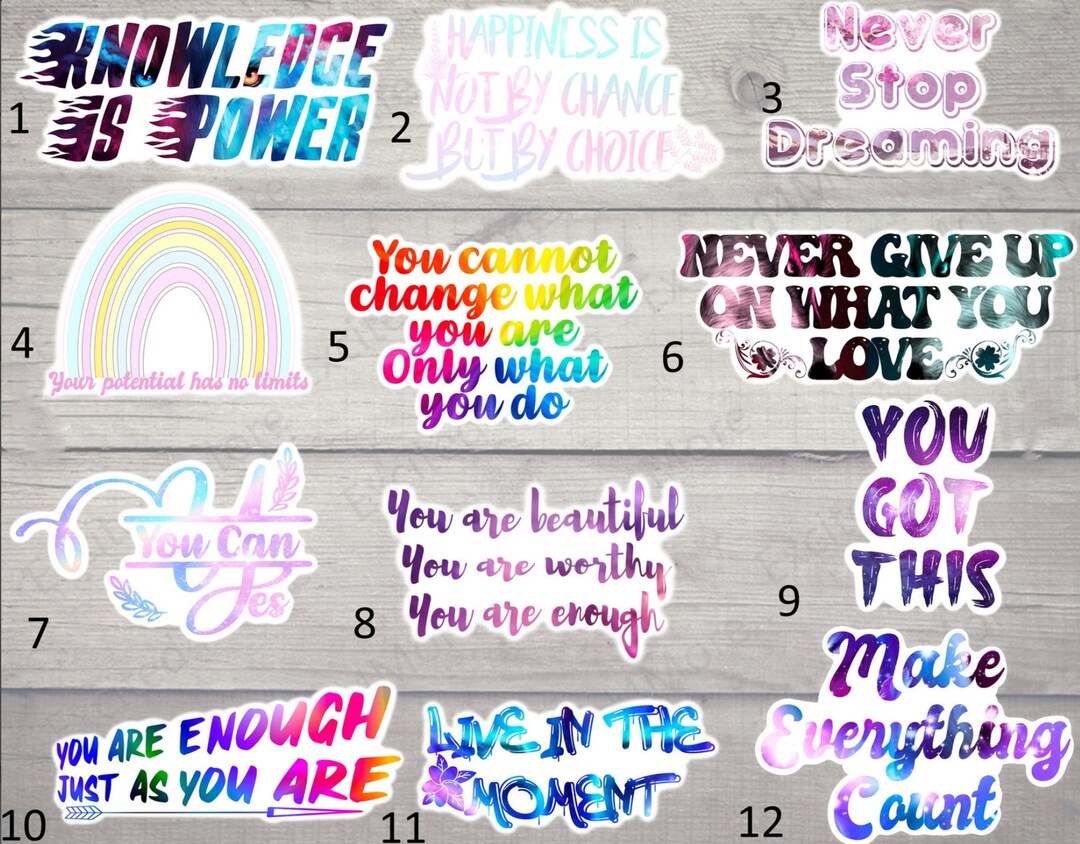 KNOWLEDGE
IS POWER
1
HAPPINESS IS
NOT BY CHANCE
BUT BY CHOICE
2
Never
Stop
Dreaming
3
Your potential has no limits
4
You cannot
change what
you are
Only what
you do
5
NEVER GIVE UP
ON WHAT YOU
LOVE
6
You Can
Yes
7
You are beautiful
You are worthy
You are enough
8
YOU
GOT
THIS
9
YOU ARE ENOUGH
JUST AS YOU ARE
10
LIVE IN THE
MOMENT
11
Make
Everything
Count
12